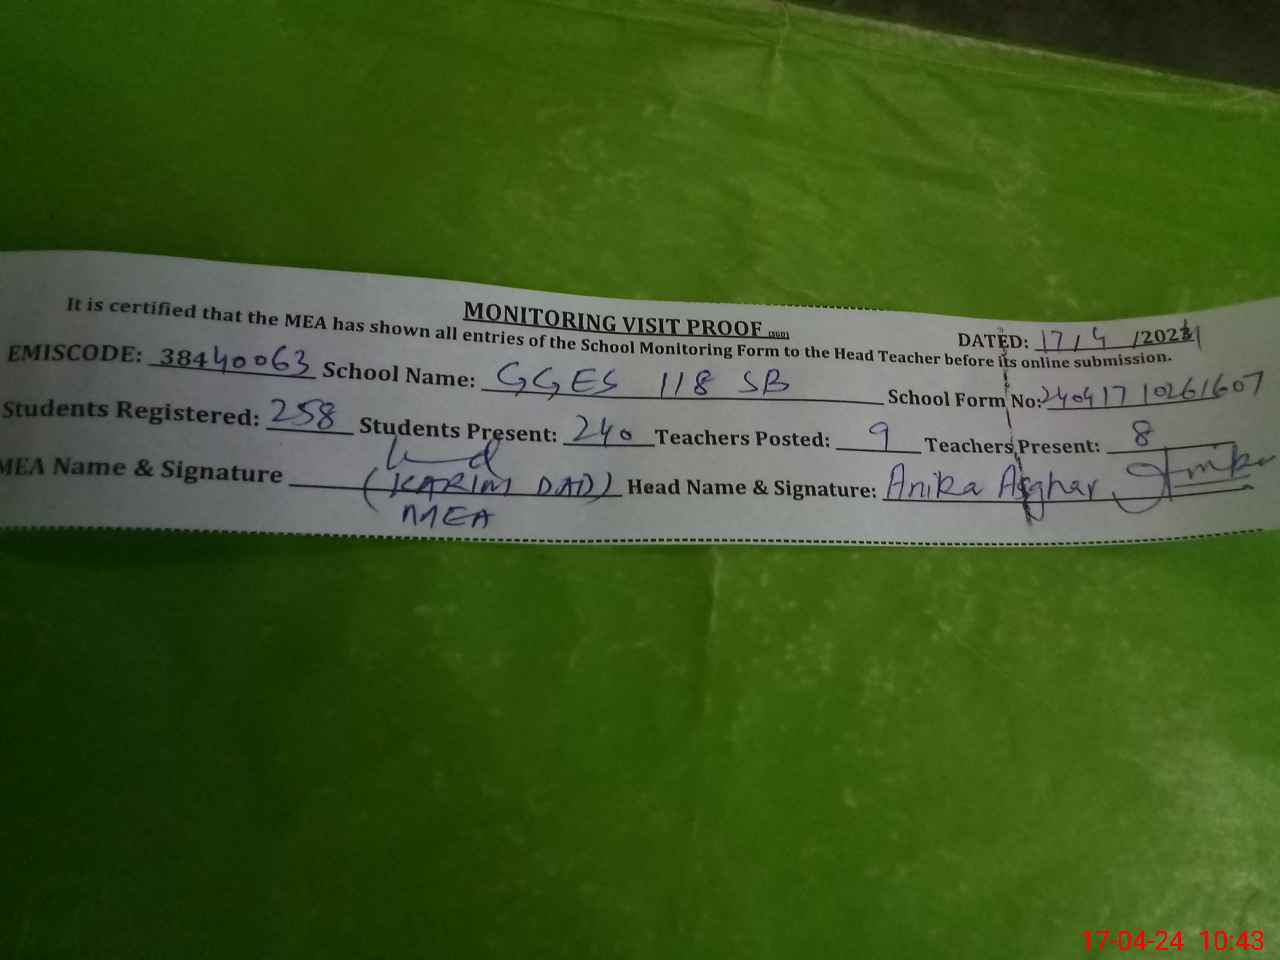 MONITORING VISIT PROOF
DATED: 17/4/202
It is certified that the MEA has shown all entries of the School Monitoring Form to the Head Teacher before its online submission.
EMISCODE: 38440063 School Name: GGES 118 SB School Form No: 240417 10261607
Students Registered: 258 Students Present: 240 Teachers Posted: 9 Teachers Present: 8
MEA Name & Signature (KARIM DAD) Head Name & Signature: Anika Asghar
MEA
17-04-24 10:43